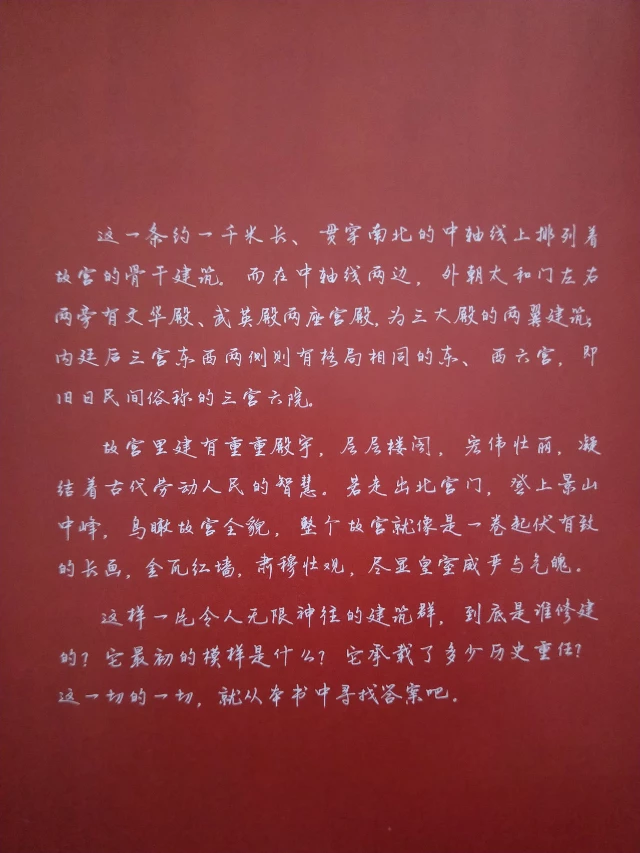 这一条约一千米长、贯穿南北的中轴线上排列着
故宫的骨干建筑。而在中轴线两边，外朝太和门左右
两旁有文华殿、武英殿两座宫殿，为三大殿的两翼建筑；
内廷后三宫东西两侧则有格局相同的东、西六宫，即
旧日民间俗称的三宫六院。
故宫里建有重重殿宇，层层楼阁，宏伟壮丽，凝
结着古代劳动人民的智慧。若走出北宫门，登上景山
中峰，鸟瞰故宫全貌，整个故宫就像是一卷起伏有致
的长画，金瓦红墙，肃穆壮观，尽显皇室威严与气魄。
这样一片令人无限神往的建筑群，到底是谁修建
的？它最初的模样是什么？它承载了多少历史重任？
这一切的一切，就从本书中寻找答案吧。